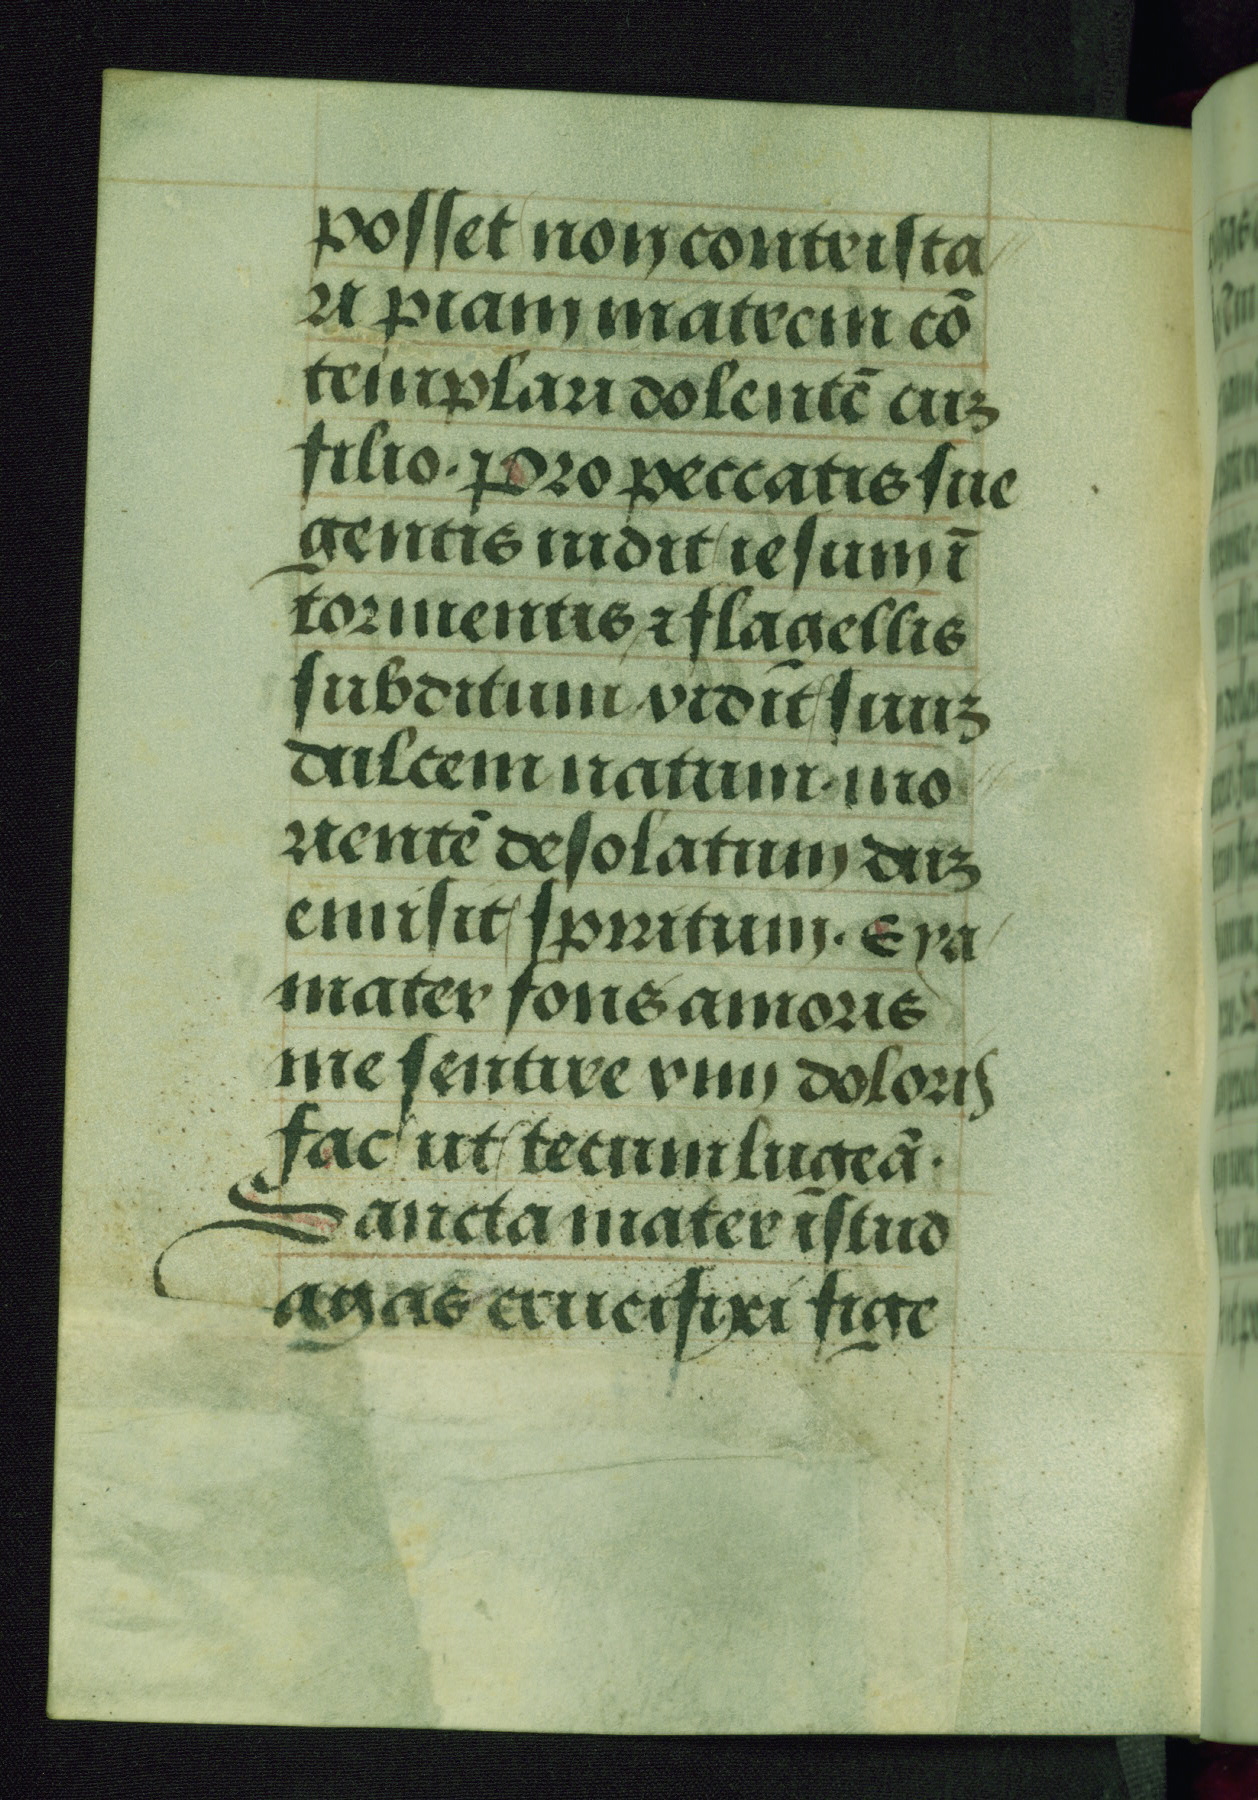 posset non contrista
ri piam matrem cō
templari dolentē cuz
filio. Pro peccatis sue
gentis uidit iesum ī
tormentis ⁊ flagellis
subditum vidit suuz
dulcem natum. mo
rientē desolatum duz
emisit spiritum. Eya
mater fons amoris
me sentire vim doloris
fac ut tecum lugeā.
Sancta mater istud
agas crucifixi fige